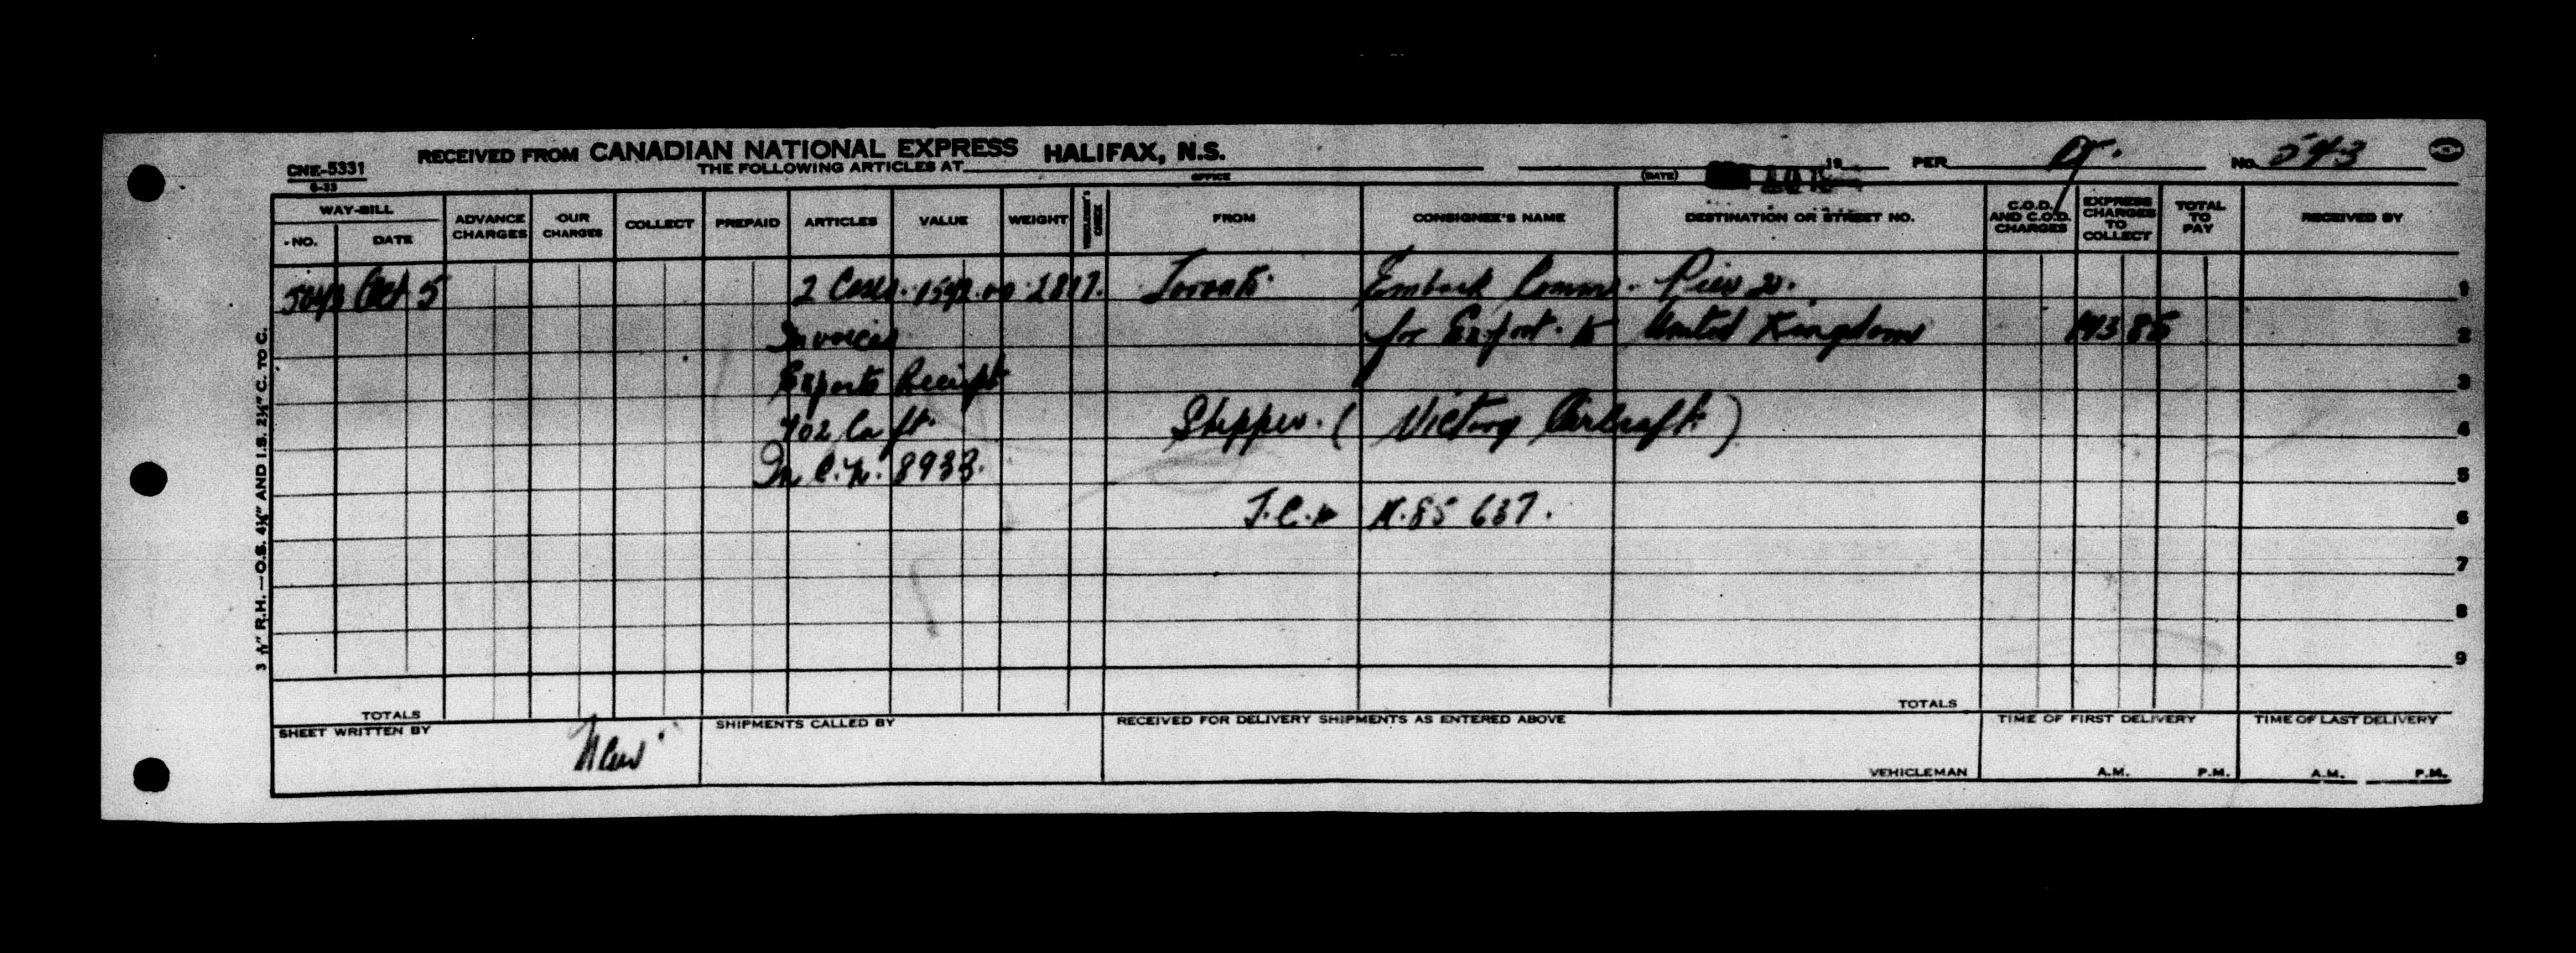 RECEIVED FROM CANADIAN NATIONAL EXPRESS HALIFAX, N.S.
CNE-5331
6-33
THE FOLLOWING ARTICLES AT
OFFICE
(DATE)
19
PER
NO. 543
WAY-BILL
NO.
DATE
ADVANCE CHARGES
OUR CHARGES
COLLECT
PREPAID
ARTICLES
VALUE
WEIGHT
FROM
CONSIGNEE'S NAME
DESTINATION OR STREET NO.
C.O.D. AND C.O.D. CHARGES
EXPRESS CHARGES TO COLLECT
TOTAL TO PAY
RECEIVED BY
Oct 5 2 Cases. 2817. Toronto. Embark Comm. Pier 20. 1
Invoices for Export. to United Kingdom 143 85 2
Exports Receipt 3
702 Cu ft. Shipper. ( Victory Aircraft. ) 4
In C.N. 8933. 5
637. 6
7
8
9
TOTALS
TOTALS
SHEET WRITTEN BY
SHIPMENTS CALLED BY
RECEIVED FOR DELIVERY SHIPMENTS AS ENTERED ABOVE
VEHICLEMAN
TIME OF FIRST DELIVERY
A.M. P.M.
TIME OF LAST DELIVERY
A.M. P.M.
R.H.—O.S. 4¼" AND I.S. 2¾" C. TO C.